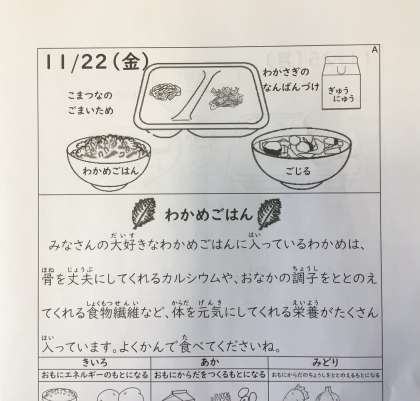 A
11/22(金)
こまつなの
ごまいため
わかさぎの
なんばんづけ
ぎゅう
にゅう
わかめごはん
ごじる
わかめごはん
みなさんの大好きなわかめごはんに入っているわかめは、
骨を丈夫にしてくれるカルシウムや、おなかの調子をととのえ
てくれる食物繊維など、体を元気にしてくれる栄養がたくさん
入っています。よくかんで食べてくださいね。
きいろ あか みどり
おもにエネルギーのもとになる おもにからだをつくるもとになる おもにからだのちょうしをととのえるもとになる